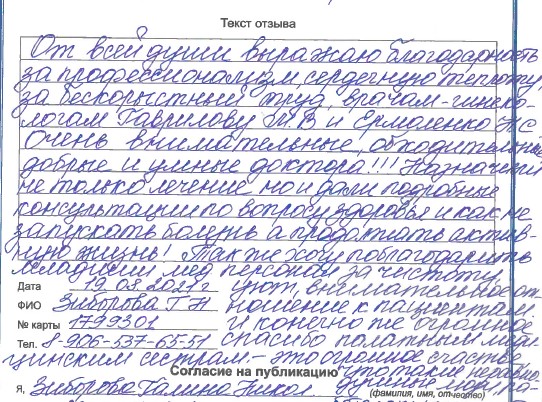 Текст отзыва
От всей души выражаю благодарность
за профессионализм, сердечную теплоту,
за бескорыстный труд, врачам-гинеко-
логам Гаврилову М.В и Ермоленко Н С
Очень внимательные, обходительные
добрые и умные доктора!!! Назначили
не только лечение но и дали подробные
консультации по вопросу здоровья и как не
запускать болезнь а продолжать актив-
ную жизнь! Так же хочу поблагодарить
младший мед персонал за чистоту
Дата 19.03.2021г уют, внимательное от-
ФИО Зиборова Г Н ношение к пациентам
№ карты 1799301 и конечно же огромное
Тел. 8-906-537-65-51 спасибо палатным меди
цинским сестрам - это огромное счастье
Согласие на публикацию что такие неравно
Я, Зиборова Галина Никол душные
(фамилия, имя, отчество)